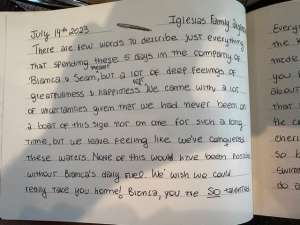 July 19th 2023 Iglesias Family
There are few words to describe just everything
that spending these 5 days in the company of
Bianca & Sean, meant but a lot of deep feelings of
gratefulness & happiness. We came with a lot
of uncertainties given that we had never been on
a boat of this size nor on one for such a long
time, but we leave feeling like we've conquered
these waters. None of this would have been possible
without Bianca's daily fuel. We wish we could
really take you home! Bianca, you are SO talented
Every
the
made
you
about
that
the c
chees
So b
swimm
do a